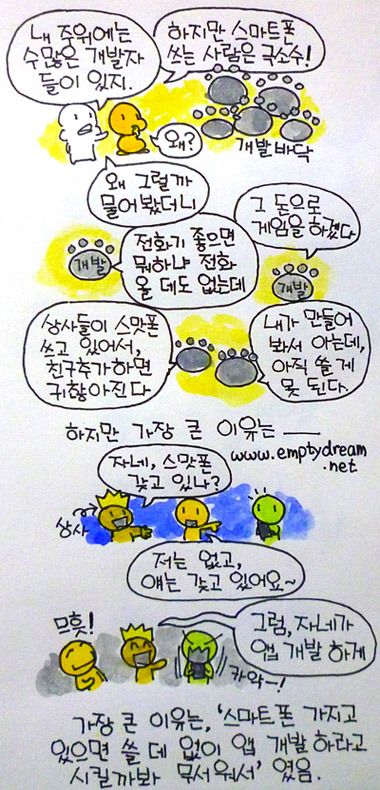 내 주위에는
수많은 개발자
들이 있지.
하지만 스마트폰
쓰는 사람은 극소수!
왜?
개발바닥
왜 그럴까
물어봤더니
그 돈으로
게임을 하겠다
개발
전화기 좋으면
뭐하냐 전화
올 데도 없는데
개발
상사들이 스맛폰
쓰고 있어서,
친구추가하면
귀찮아진다
내가 만들어
봐서 아는데,
아직 쓸 게
못 된다.
하지만 가장 큰 이유는 ―
www.emptydream
.net
자네, 스맛폰
갖고 있나?
상사
저는 없고,
얘는 갖고 있어요~
므흣!
그럼, 자네가
앱 개발 하게
카악~!
가장 큰 이유는, '스마트폰 가지고
있으면 쓸 데 없이 앱 개발하라고
시킬까봐 무서워서' 였음.